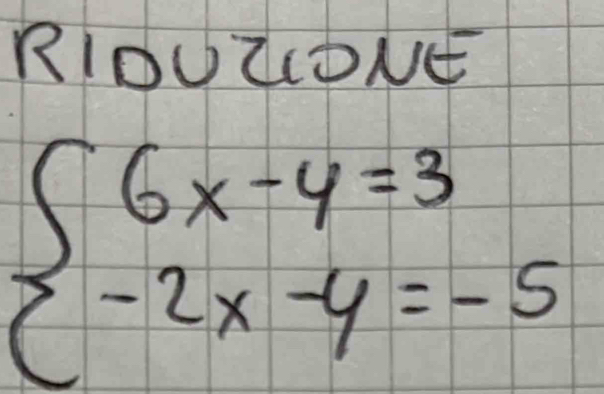 RIDUZIONE
6x-y=3
-2x-y=-5